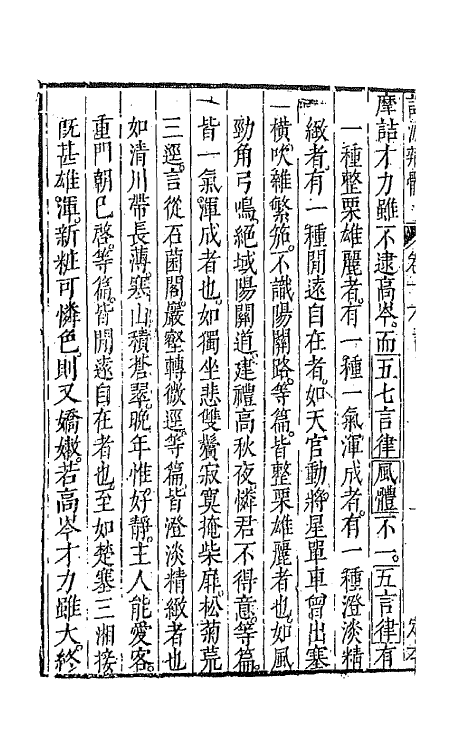 摩詰才力雖不逮高岑而五七言律風體不一五言律有
一種整栗雄麗者有一種一氣渾成者有一種澄淡精
緻者有一種閒遠自在者如天官動將星單車曾出塞
橫吹雜繁笳不識陽關路等篇皆整栗雄麗者也如風
勁角弓鳴絕域陽關道建禮高秋夜憐君不得意等篇
皆一氣渾成者也如獨坐悲雙鬢寂寞掩柴扉松菊荒
三逕言從石菌閣巖壑轉微逕等篇皆澄淡精緻者也
如清川帶長薄寒山積蒼翠晚年惟好靜主人能愛客
重門朝已啓等篇皆閒遠自在者也至如楚塞三湘接
既甚雄渾新粧可憐色則又嬌嫩若高岑才力雖大終